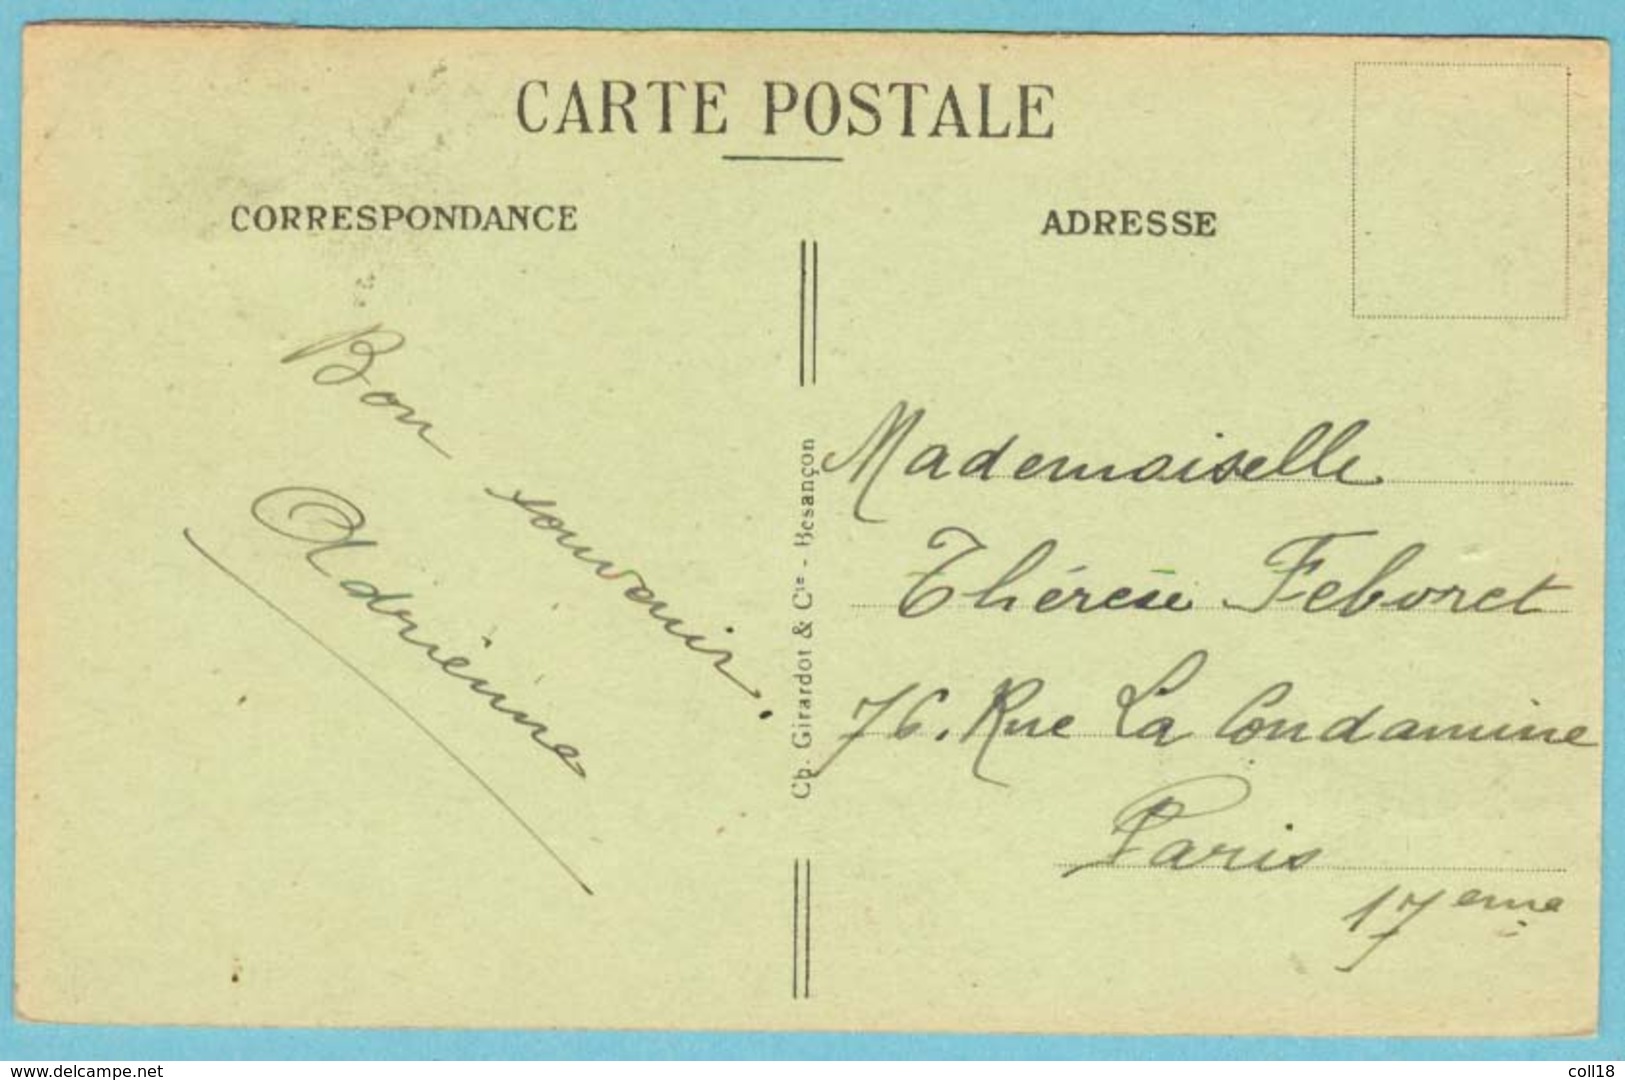 CARTE POSTALE
CORRESPONDANCE
ADRESSE
Bon souvenir.
Adrienne
Ch. Girardot & Cie - Besançon
Mademoiselle
Thérèse Feboret
76. Rue La Condamine
Paris
17eme
www.delcampe.net
coll18